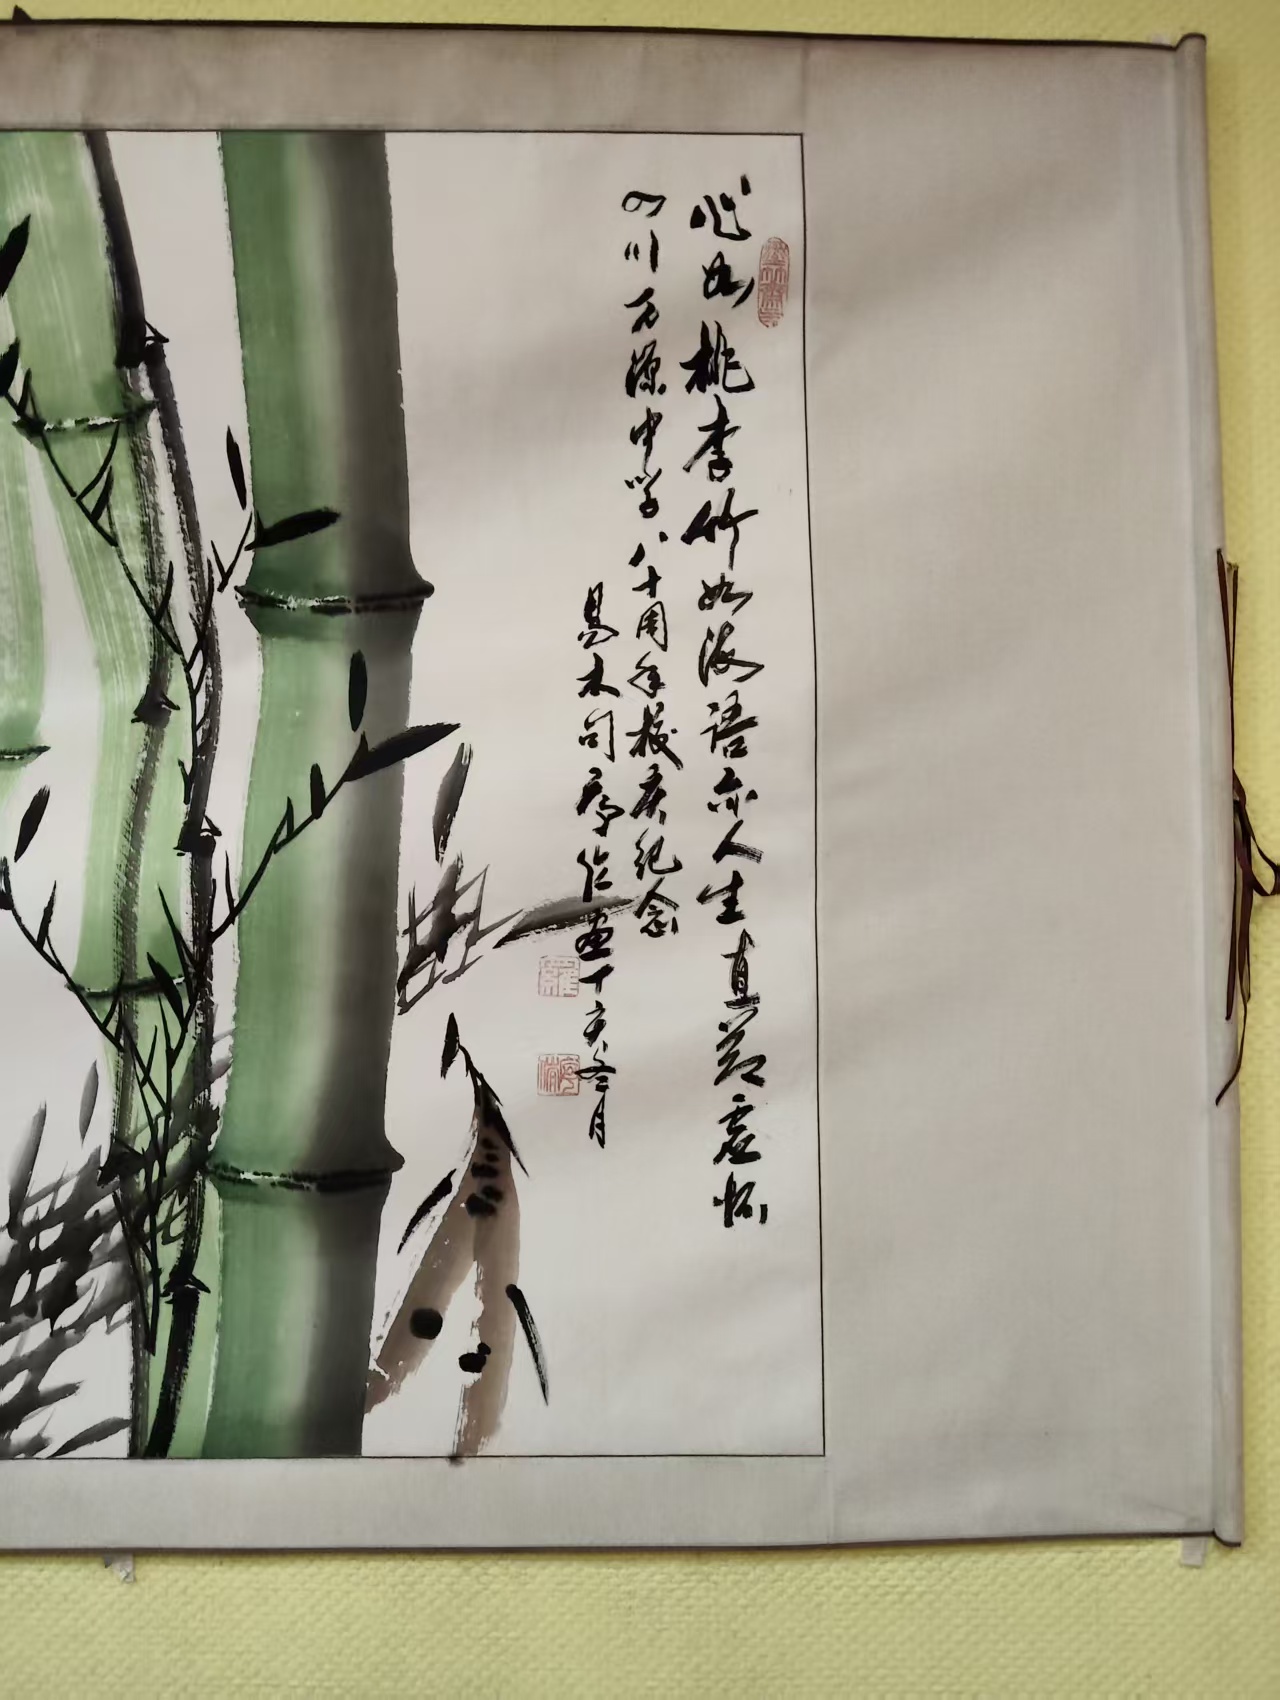 心如桃李竹如海語亦人生直節虚怀
四川万源中学八十周年校庆纪念
易木司序作画丁亥冬月
羅